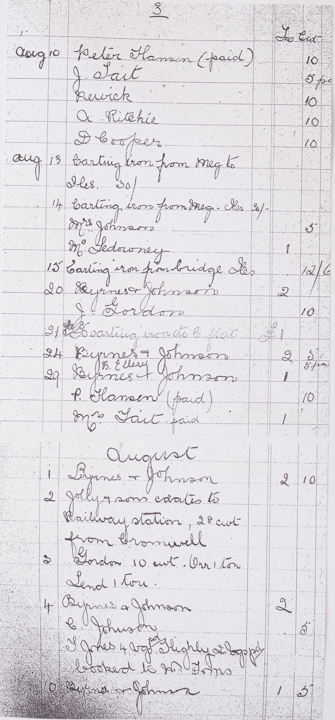 3
Ins Cwt
Aug 10 Peter Hansen (paid) 10
J. Tait 5 pd
Newick 10
A. Ritchie 10
D Cooper 10
Aug 13 Carting iron from Meg to
Iles. 30/
14 Carting iron from Meg. Iles 5/-
Mrs Johnson 5
Mc 1
15 Carting iron from bridge Iles 12/6
20 Byrnes & Johnson 2
J. Gordon 10
21 carting iron to flat £1
24 Byrnes & Johnson 2 5
B. Ellery 5 pd
29 Byrnes & Johnson 1
P. Hansen (paid) 10
Mrs Tait paid 1
August
1 Byrnes & Johnson 2 10
2 Jolly & sons crates to
Railway station, 28 cwt
from Cromwell
3 Gordon 10 cwt. Orr 1 ton
Lend 1 ton.
4 Byrnes & Johnson 2
C. Johnson 5
T Jones 4 bgs
booked to
10 Byrnes & Johnson 1 5